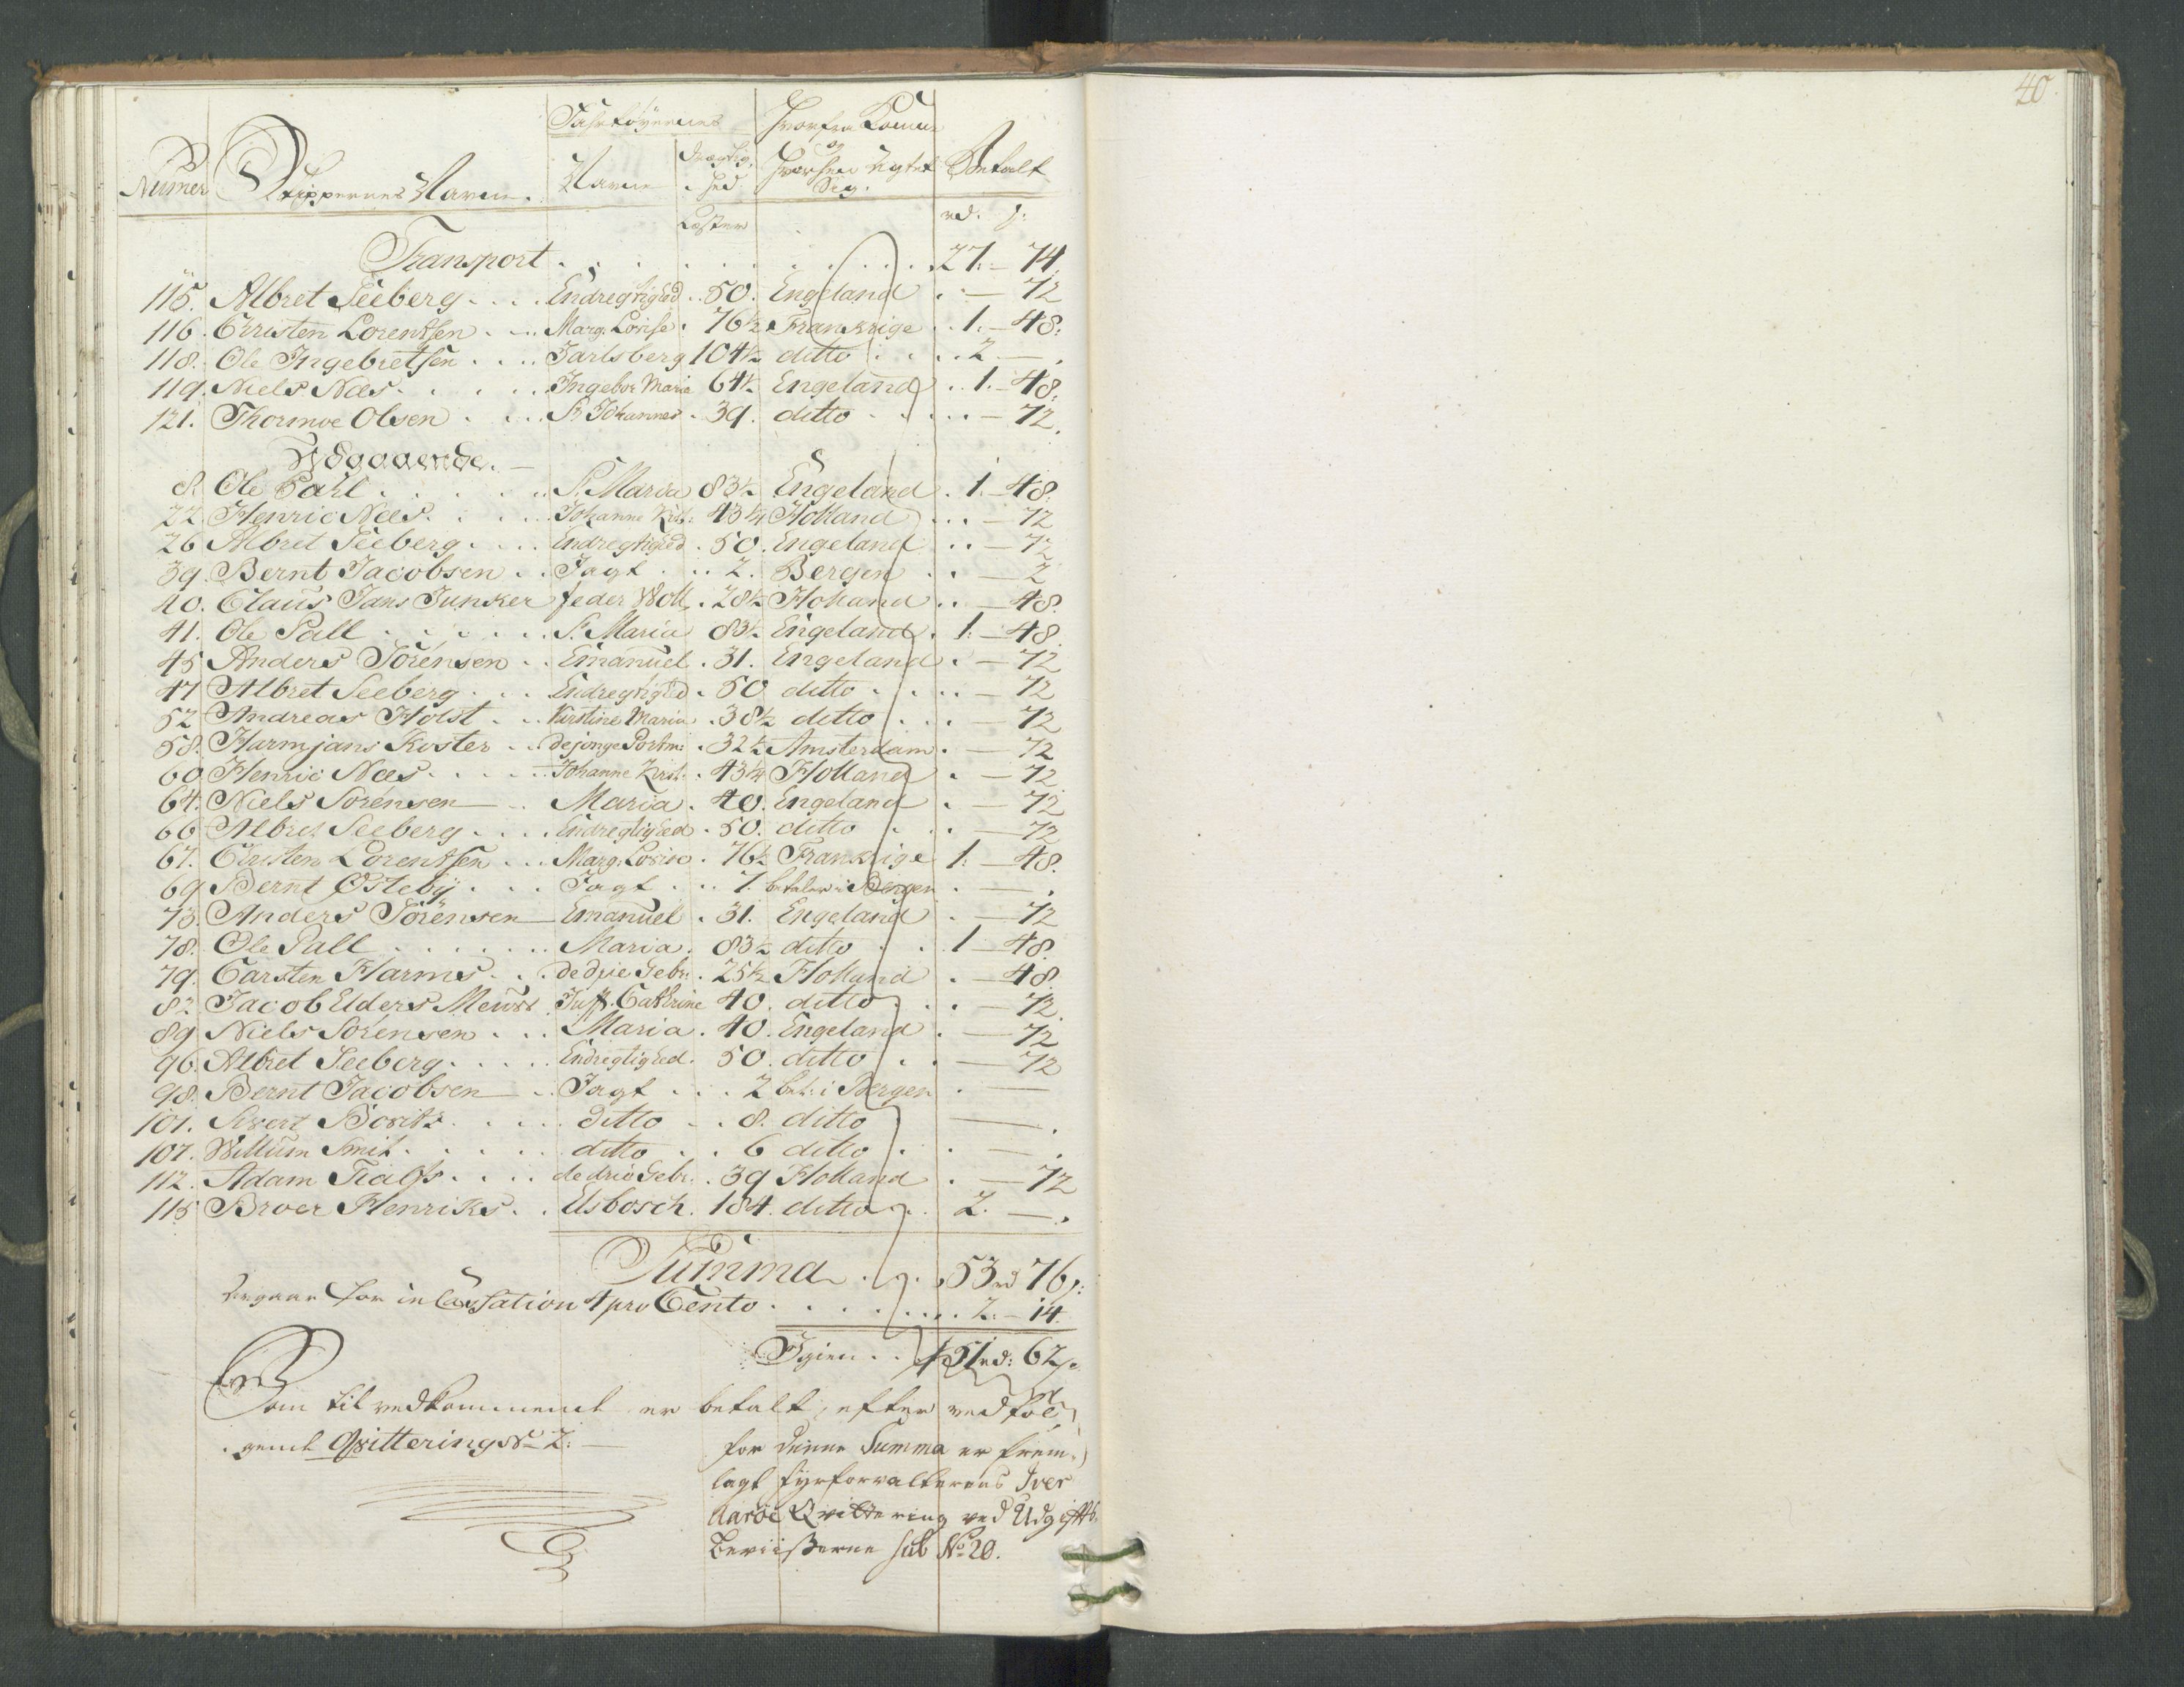 40
Fahrtöyernes Hvorfra Komne
Numer Skippernes Navne. Navne Drægtig, hed og Hvorhen Agtet Sig. Betalt
Læster rd. s:
Transport . . . . . . . . 27. — 74.
115. Albret Seeberg . . . Endregtighed . . 50. Engeland . — 72
116. Christen Lorentsen . . . Marg. Lovise . 76½ Frankrige . . 1. — 48.
118. Ole Ingebretsen . . . Jarlsberg 104½ ditto . . . . 2 — .
119. Niels Næs . . . . . Ingebor Maria 64½ Engeland . . 1. — 48.
121. Thormoe Olsen . . . St Johannes . 39. ditto . . . . — 72.
Udgaaende. —
8. Ole Pahl . . . . . . S. Maria 83½ Engeland . 1. — 48.
22. Henric Næs . . . . Johanne Kirst: 43¼ Holland . . . — 72
26 Albret Seeberg . . . . Endregtighed . 50. Engeland . . — 72
39. Bernt Jacobsen . . Jagt . . . 2. Bergen . . — 2
40. Claus Jans Junker feder Woll . 28½ Holland . . — 48.
41. Ole Pall . . . . . . S. Maria 83½ Engeland . 1. — 48.
45 Anders Sörensen . . Emanuel . 31. Engeland . — 72
47 Albret Seeberg . . . Endregtighed . 50 ditto . . . . — 72
52 Andreas Holst . . . Kirstine Maria . 38½ ditto . . . — 72
58. Harmjans Koster . . de jonge Portm: . 32½ Amsterdam . — 72
60 Henric Næs . . . . Johanne Kirst. . 43¼ Holland . — 72
64. Niels Sörensen — . . Maria . 40. Engeland . — 72
66 Albret Seeberg . . . . Endregtighed . 50. ditto . . — 72
67. Christen Lorentsen . . . Marg. Lovise . 76½ Frankrige 1. — 48.
69 Bernt Östebÿ . . . Jagt . . . 7. betaler i Bergen . — .
73. Anders Sörensen — Emanuel . 31. Engeland . — 72
78. Ole Pall . . . . . . . Maria . 83½ ditto . . 1 — 48.
79. Carsten Harms . . . de drie Gebr: . 25½ Holland . — 48.
82 Jacob Elders Meust Juff. Cathrine 40. ditto . . . — 72.
89 Niels Sörensen . . . Maria . 40. Engeland . — 72
96. Albret Seeberg . . . . Endregtighed . 50. ditto . . — 72
98. Bernt Jacobsen — . . Jagt . . . 2 bet: i Bergen . —
101. Sivert . . . . . ditto . . 8. ditto — .
107. Willum Smit . . . . . ditto . . 6 ditto . . — .
112. Adam . . . . de drie Gebr: . 39 Holland . — 72
115 Broer Henriks . . Elsbosch . 184. ditto . . 2. — .
Summa . . . 53 rd 76 s:
Afgaar for in Cassation 4 pro Cento . . . . . . . . 2. — 14.
Igien . . 51 rd: 62 s.
Som til vedkommende er betalt, efter ved föl,
gende Qvittering No 2. —
for denne Summa er frem,
lagt fyrforvalterens Iver
Aaröe Qvittering ved Udgifts,
beviiserne sub No 20.